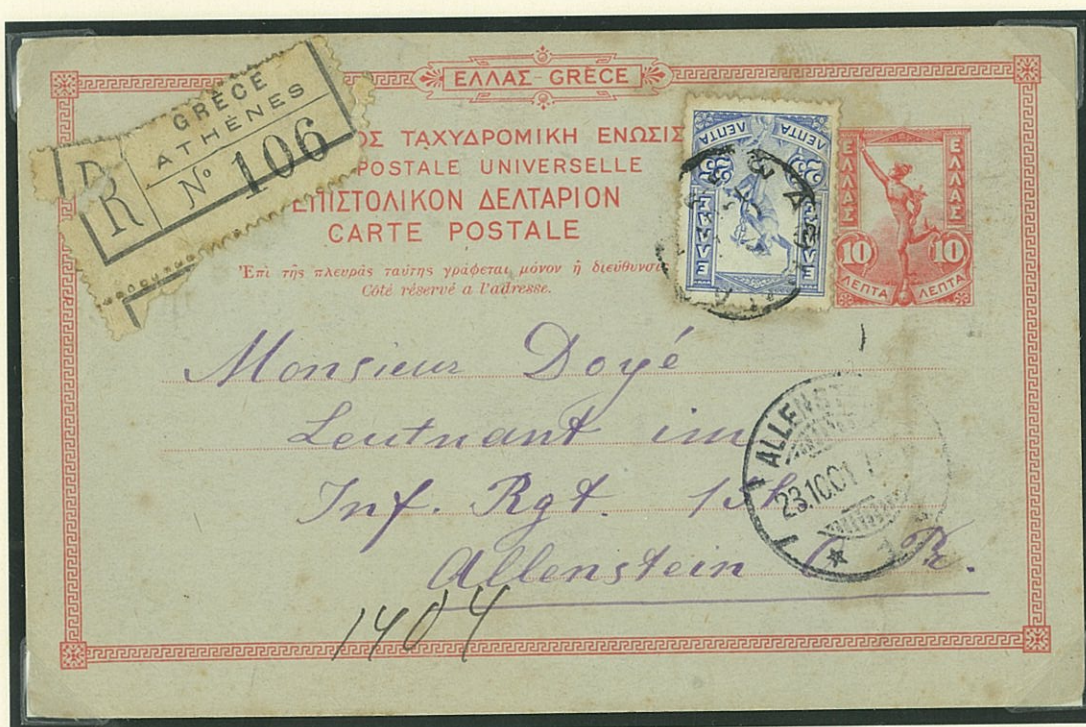 ΕΛΛΑΣ-GRÈCE
GRÈCE
ATHÈNES
R Nº 106
ΟΣ ΤΑΧΥΔΡΟΜΙΚΗ ΕΝΩΣΙΣ
POSTALE UNIVERSELLE
ΕΠΙΣΤΟΛΙΚΟΝ ΔΕΛΤΑΡΙΟΝ
CARTE POSTALE
Ἐπὶ τῆς πλευρᾶς ταύτης γράφεται μόνον ἡ διεύθυνσι
Côté réservé a l'adresse.
25 25
ΛΕΠΤΑ ΛΕΠΤΑ
ΕΛΛΑΣ ΕΛΛΑΣ
ΕΛΛΑΣ ΕΛΛΑΣ
10 10
ΛΕΠΤΑ ΛΕΠΤΑ
Monsieur Doyé
Leutnant im
Inf. Rgt.
Allenstein
ALLENST
23.10.01
1404